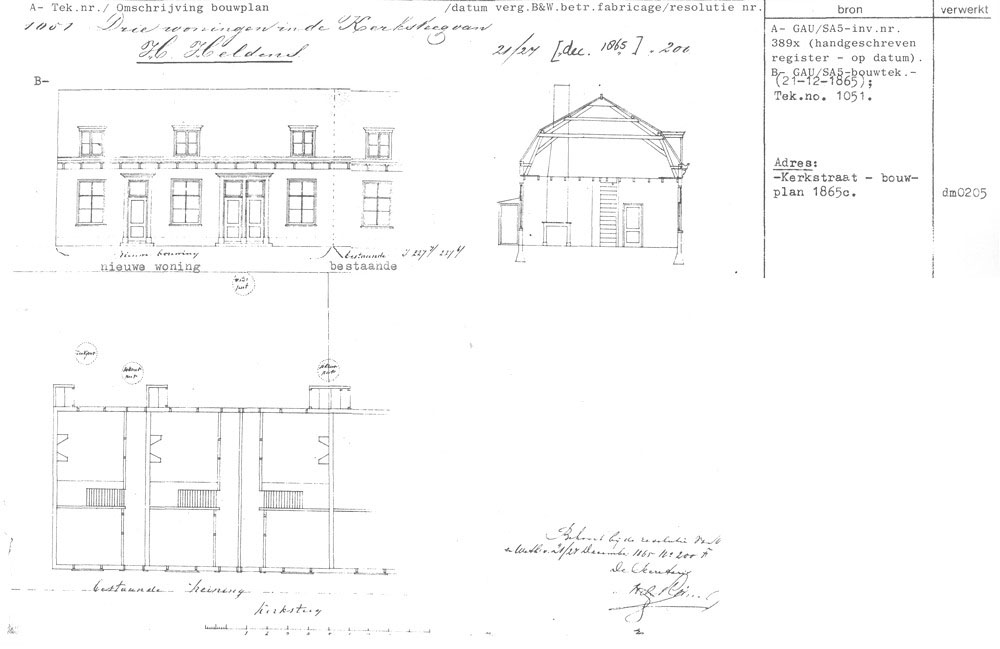 A- Tek.nr./ Omschrijving bouwplan /datum verg.B&W.betr.fabricage/resolutie nr.
bron
verwerkt
1051 Drie woningen in de Kerksteeg van
H. Heldens
21/27 [dec. 1865] . 200
A- GAU/SA5-inv.nr.
389x (handgeschreven
register - op datum).
B- GAU/SA5-bouwtek.-
(21-12-1865);
Tek.no. 1051.
Adres:
-Kerkstraat - bouw-
plan 1865c.
dm0205
B-
bestaande
nieuwe woning
bestaande
bestaande heining
Kerksteeg
1 2
Behoort bij de resolutie van
21/27 December 1865 No 200 F
De